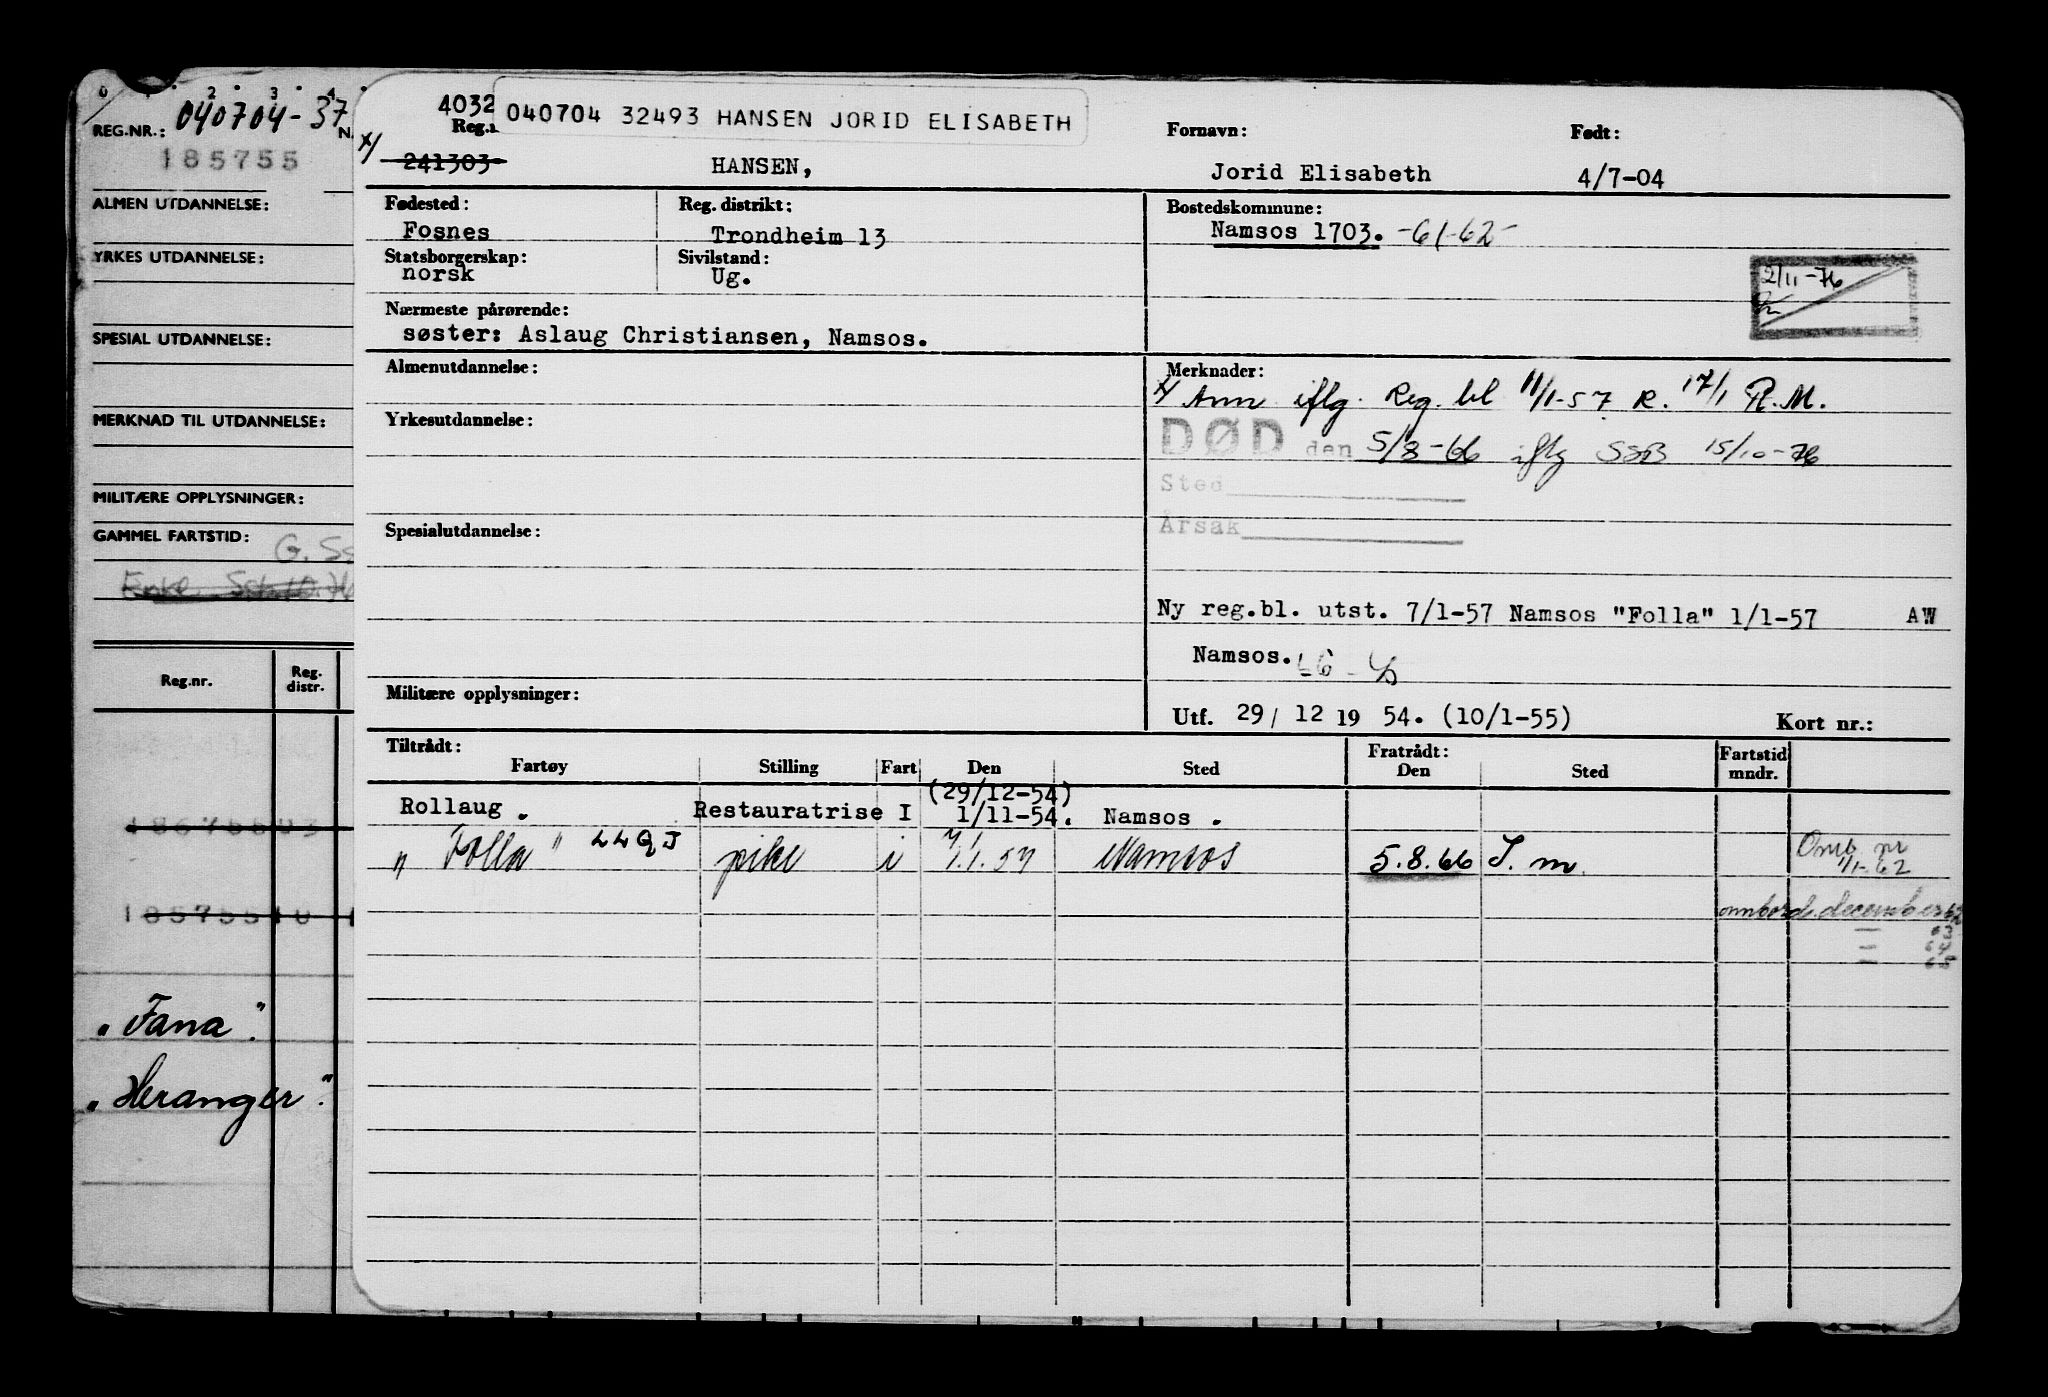 0 1 2 3 4
REG.NR.: 040704-37
N
185755
ALMEN UTDANNELSE:
YRKES UTDANNELSE:
SPESIAL UTDANNELSE:
MERKNAD TIL UTDANNELSE:
MILITÆRE OPPLYSNINGER:
GAMMEL FARTSTID:
G. Ss
Reg.nr.
Reg. distr.
185755 10
"Fana".
"Heranger".
4032
Reg.n
040704 32493 HANSEN JORID ELISABETH
x/ 241303
HANSEN,
Fornavn:
Jorid Elisabeth
Født:
4/7-04
Fødested:
Fosnes
Reg. distrikt:
Trondheim 13
Bostedskommune:
Namsos 1703. -61-62-
Statsborgerskap:
norsk
Sivilstand:
Ug.
2/11-76
Nærmeste pårørende:
søster: Aslaug Christiansen, Namsos.
Almenutdannelse:
Yrkesutdannelse:
Spesialutdannelse:
Militære opplysninger:
Merknader:
x/ Ann iflg. Reg. bl 11/1-57 R. 17/1 R.M.
DØD den 5/8-66 iflg SSB 15/10-76
Sted
Årsak
Ny reg.bl. utst. 7/1-57 Namsos "Folla" 1/1-57 AW
Namsos.
Utf. 29/ 12 19 54. (10/1-55)
Kort nr.:
Tiltrådt:
Fartøy Stilling Fart Den Sted
Fratrådt:
Den Sted
Fartstid mndr.
(29/12-54)
Rollaug . Restauratrise I 1/11-54. Namsos .
" Folla " LLQJ pike i 1.1.57 Namsos 5.8.66 S. m.
Omb pr
1/1-62
ombord. december 62
— 63
— 64
— 65